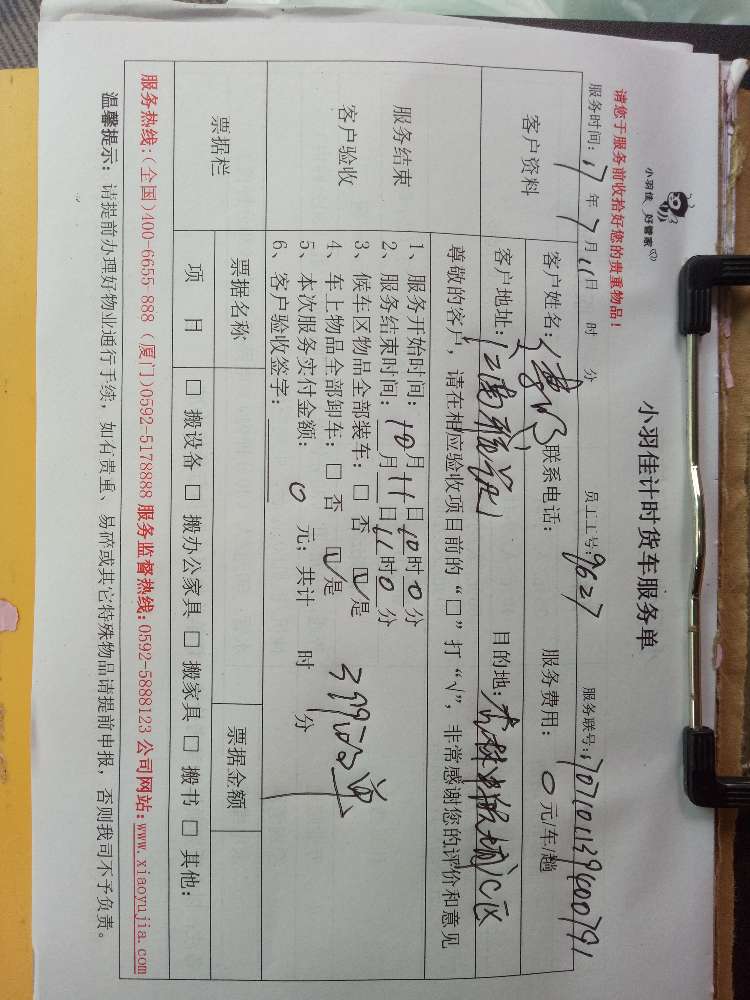 小羽佳 好管家
小羽佳计时货车服务单
请您于服务前收拾好您的贵重物品！
服务时间：17年7月11日 时 分 员工工号：9627 服务联号：
客户资料
客户姓名： 联系电话： 服务费用：0元/车/趟
客户地址：江南 目的地：
尊敬的客户，请在相应验收项目前的“□”打“√”，非常感谢您的评价和意见
服务结束
客户验收
1、服务开始时间： 月11日10时0分
2、服务结束时间： 月11日11时0分
3、候车区物品全部装车：□ 否 ☑ 是
4、车上物品全部卸车：□ 否 ☑ 是
5、本次服务实付金额：0元；共计 时 分
6、客户验收签字：
票据栏
票据名称 票据金额
项 目 □ 搬设备 □ 搬办公家具 □ 搬家具 □ 搬书 □ 其他：
服务热线：（全国）400-6655 888（厦门）0592-5178888 服务监督热线：0592-5888123 公司网站：www.xiaoyujia.com
温馨提示：请提前办理好物业通行手续，如有贵重、易碎或其它特殊物品请提前申报，否则我司不予负责。